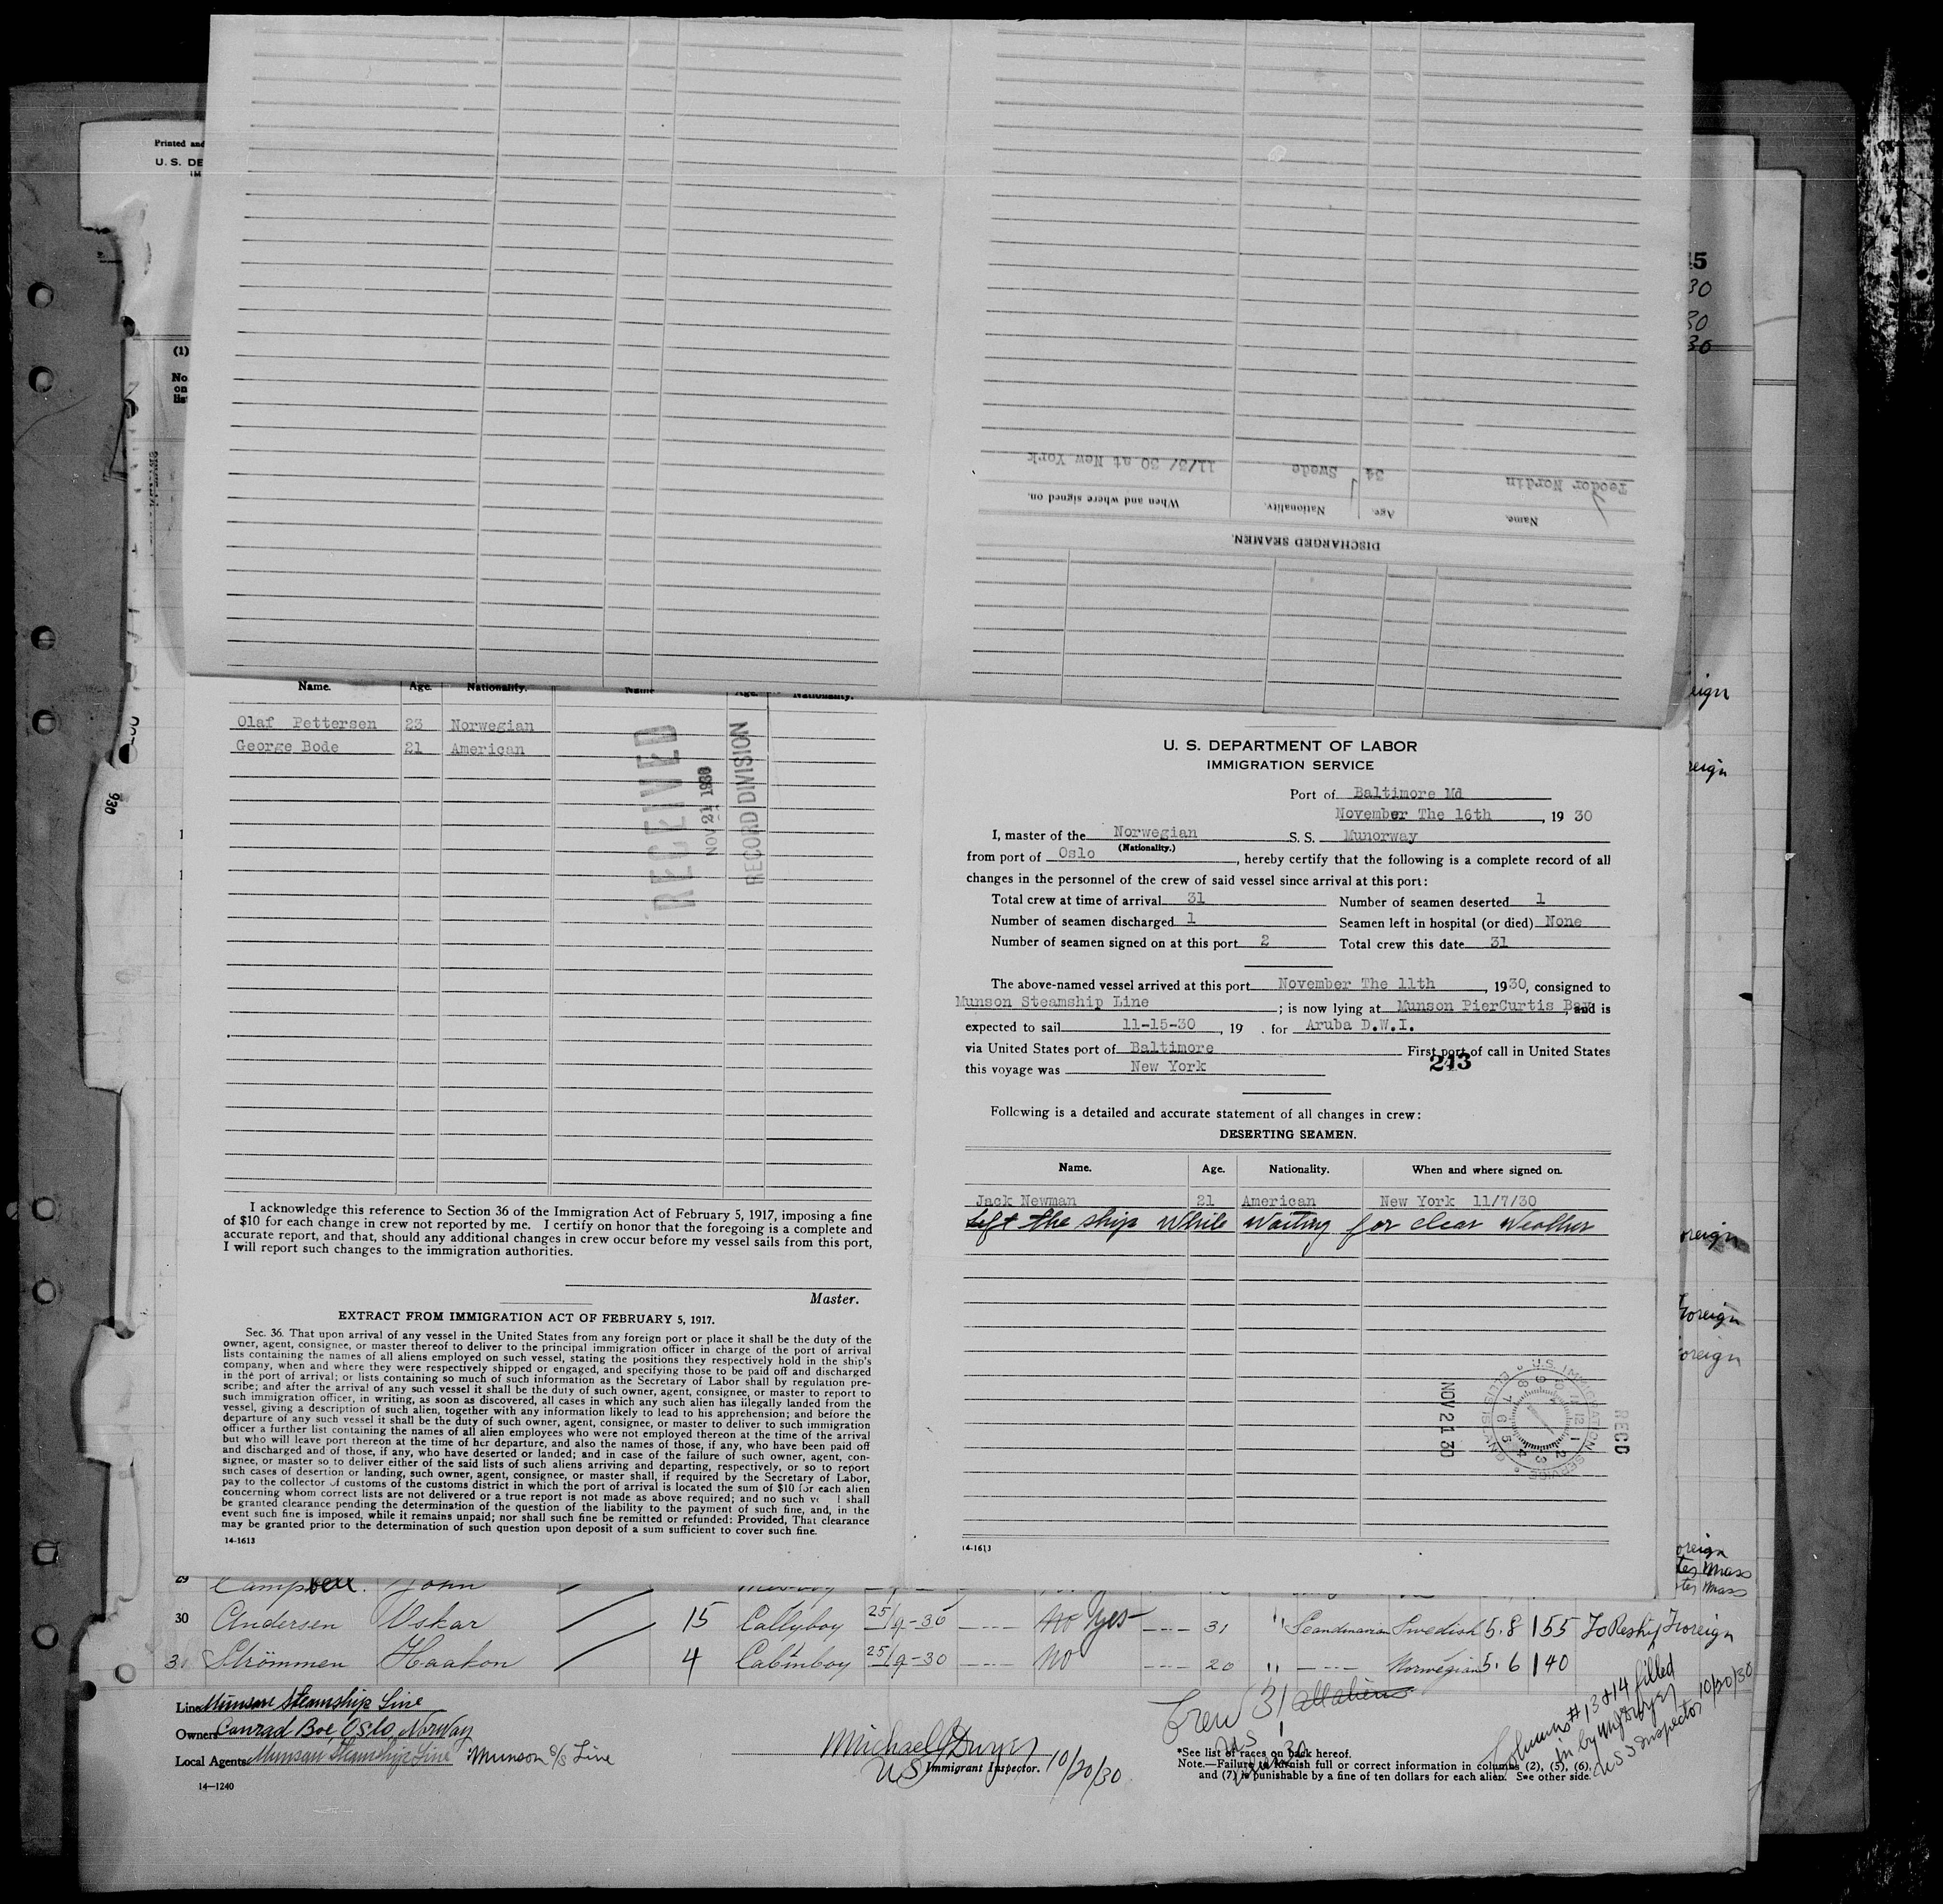 Printed and
U. S. DE
IM
(1)
No
on
lis
15
30
30
30
DISCHARGED SEAMEN.
Name. Age. Nationality. When and where signed on.
Teodor Nordin 34 Swede 11/3/30 at New York
Name. Age. Nationality. Name. Age. Nationality.
Olaf Pettersen 23 Norwegian
George Bode 21 American
RECEIVED
NOV 21 1930
RECORD DIVISION
930
I acknowledge this reference to Section 36 of the Immigration Act of February 5, 1917, imposing a fine
of $10 for each change in crew not reported by me. I certify on honor that the foregoing is a complete and
accurate report, and that, should any additional changes in crew occur before my vessel sails from this port,
I will report such changes to the immigration authorities.
Master.
EXTRACT FROM IMMIGRATION ACT OF FEBRUARY 5, 1917.
Sec. 36. That upon arrival of any vessel in the United States from any foreign port or place it shall be the duty of the
owner, agent, consignee, or master thereof to deliver to the principal immigration officer in charge of the port of arrival
lists containing the names of all aliens employed on such vessel, stating the positions they respectively hold in the ship's
company, when and where they were respectively shipped or engaged, and specifying those to be paid off and discharged
in the port of arrival; or lists containing so much of such information as the Secretary of Labor shall by regulation pre-
scribe; and after the arrival of any such vessel it shall be the duty of such owner, agent, consignee, or master to report to
such immigration officer, in writing, as soon as discovered, all cases in which any such alien has illegally landed from the
vessel, giving a description of such alien, together with any information likely to lead to his apprehension; and before the
departure of any such vessel it shall be the duty of such owner, agent, consignee, or master to deliver to such immigration
officer a further list containing the names of all alien employees who were not employed thereon at the time of the arrival
but who will leave port thereon at the time of her departure, and also the names of those, if any, who have been paid off
and discharged and of those, if any, who have deserted or landed; and in case of the failure of such owner, agent, con-
signee, or master so to deliver either of the said lists of such aliens arriving and departing, respectively, or so to report
such cases of desertion or landing, such owner, agent, consignee, or master shall, if required by the Secretary of Labor,
pay to the collector of customs of the customs district in which the port of arrival is located the sum of $10 for each alien
concerning whom correct lists are not delivered or a true report is not made as above required; and no such ve l shall
be granted clearance pending the determination of the question of the liability to the payment of such fine, and, in the
event such fine is imposed, while it remains unpaid; nor shall such fine be remitted or refunded: Provided, That clearance
may be granted prior to the determination of such question upon deposit of a sum sufficient to cover such fine.
14-1613
U. S. DEPARTMENT OF LABOR
IMMIGRATION SERVICE
Port of Baltimore Md
November The 16th, 19 30
I, master of the Norwegian S. S. Munorway
(Nationality.)
from port of Oslo, hereby certify that the following is a complete record of all
changes in the personnel of the crew of said vessel since arrival at this port:
Total crew at time of arrival 31 Number of seamen deserted 1
Number of seamen discharged 1 Seamen left in hospital (or died) None
Number of seamen signed on at this port 2 Total crew this date 31
The above-named vessel arrived at this port November The 11th, 1930, consigned to
Munson Steamship Line; is now lying at Munson PierCurtis Bay, and is
expected to sail 11-15-30, 19 . for Aruba D.W.I.
via United States port of Baltimore First port of call in United States
this voyage was New York
243
Following is a detailed and accurate statement of all changes in crew:
DESERTING SEAMEN.
Name. Age. Nationality. When and where signed on.
Jack Newman 21 American New York 11/7/30
Left the ship while waiting for clear weather
NOV 21 30
U.S. IMMIGRATION SERVICE ELLIS IS. N.Y.
RECD
14-1613
eign
reign
oreign
Foreign
oreign
oreign
Mass
Mass
29 Campbell John
30 Andersen Oskar 15 Callyboy 25/9-30 No Yes 31 " Scandinavian Swedish 5.8 155 To Reship Foreign
31 Strömmen Haakon 4 Cabinboy 25/9-30 No 20 " Norwegian 5.6 140
Line Munson Steamship Line
Owners Conrad Boe, Oslo, Norway
Local Agents Munson Steamship Line Munson S/S Line
14—1240
Michael J Dwyer
US Immigrant Inspector. 10/20/30
Crew 31 all aliens
US 1
30
Columns #13 & 14 filled
in by MJ Dwyer
US Inspector 10/20/30
*See list of races on back hereof.
Note.—Failure to furnish full or correct information in columns (2), (5), (6),
and (7) is punishable by a fine of ten dollars for each alien. See other side.